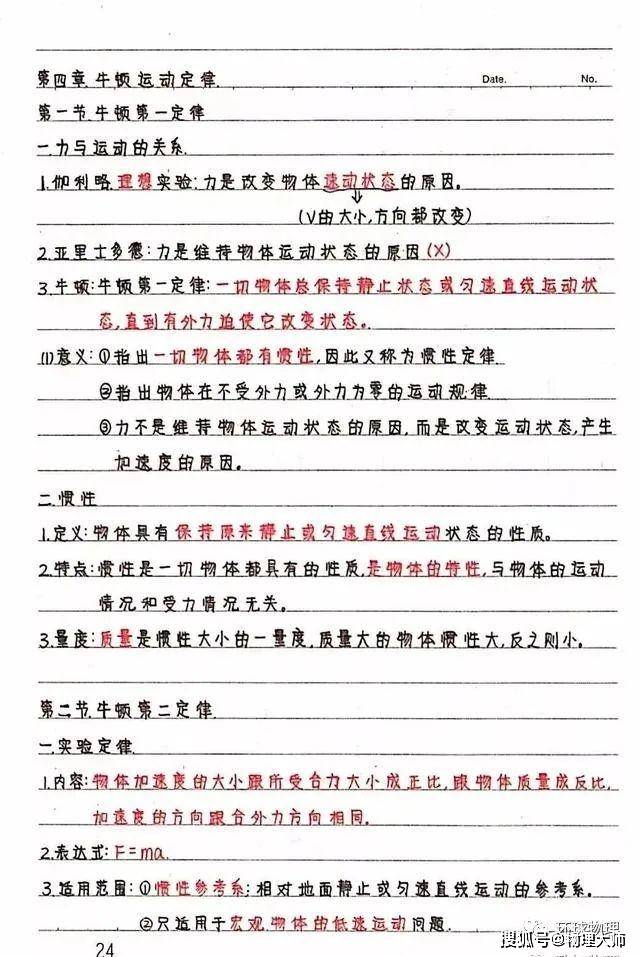 第四章 牛顿运动定律
Date. No.
第一节 牛顿第一定律
一.力与运动的关系.
1.伽利略理想实验:力是改变物体速动状态的原因。
(V的大小,方向都改变)
2.亚里士多德:力是维持物体运动状态的原因(X)
3.牛顿:牛顿第一定律:一切物体总保持静止状态或匀速直线运动状
态,直到有外力迫使它改变状态。
(1)意义:①指出一切物体都有惯性,因此又称为惯性定律
②指出物体在不受外力或外力为零的运动规律
③力不是维持物体运动状态的原因,而是改变运动状态,产生
加速度的原因。
二.惯性
1.定义:物体具有保持原来静止或匀速直线运动状态的性质。
2.特点:惯性是一切物体都具有的性质,是物体的特性,与物体的运动
情况和受力情况无关。
3.量度:质量是惯性大小的一量度,质量大的物体惯性大,反之则小。
第二节.牛顿第二定律.
一.实验定律
1.内容:物体加速度的大小跟所受合力大小成正比,跟物体质量成反比,
加速度的方向跟合外力方向相同。
2.表达式:F=ma.
3.适用范围:①惯性参考系:相对地面静止或匀速直线运动的参考系。
②只适用于宏观物体的低速运动问题.
环球物理
搜狐号@物理大师
24